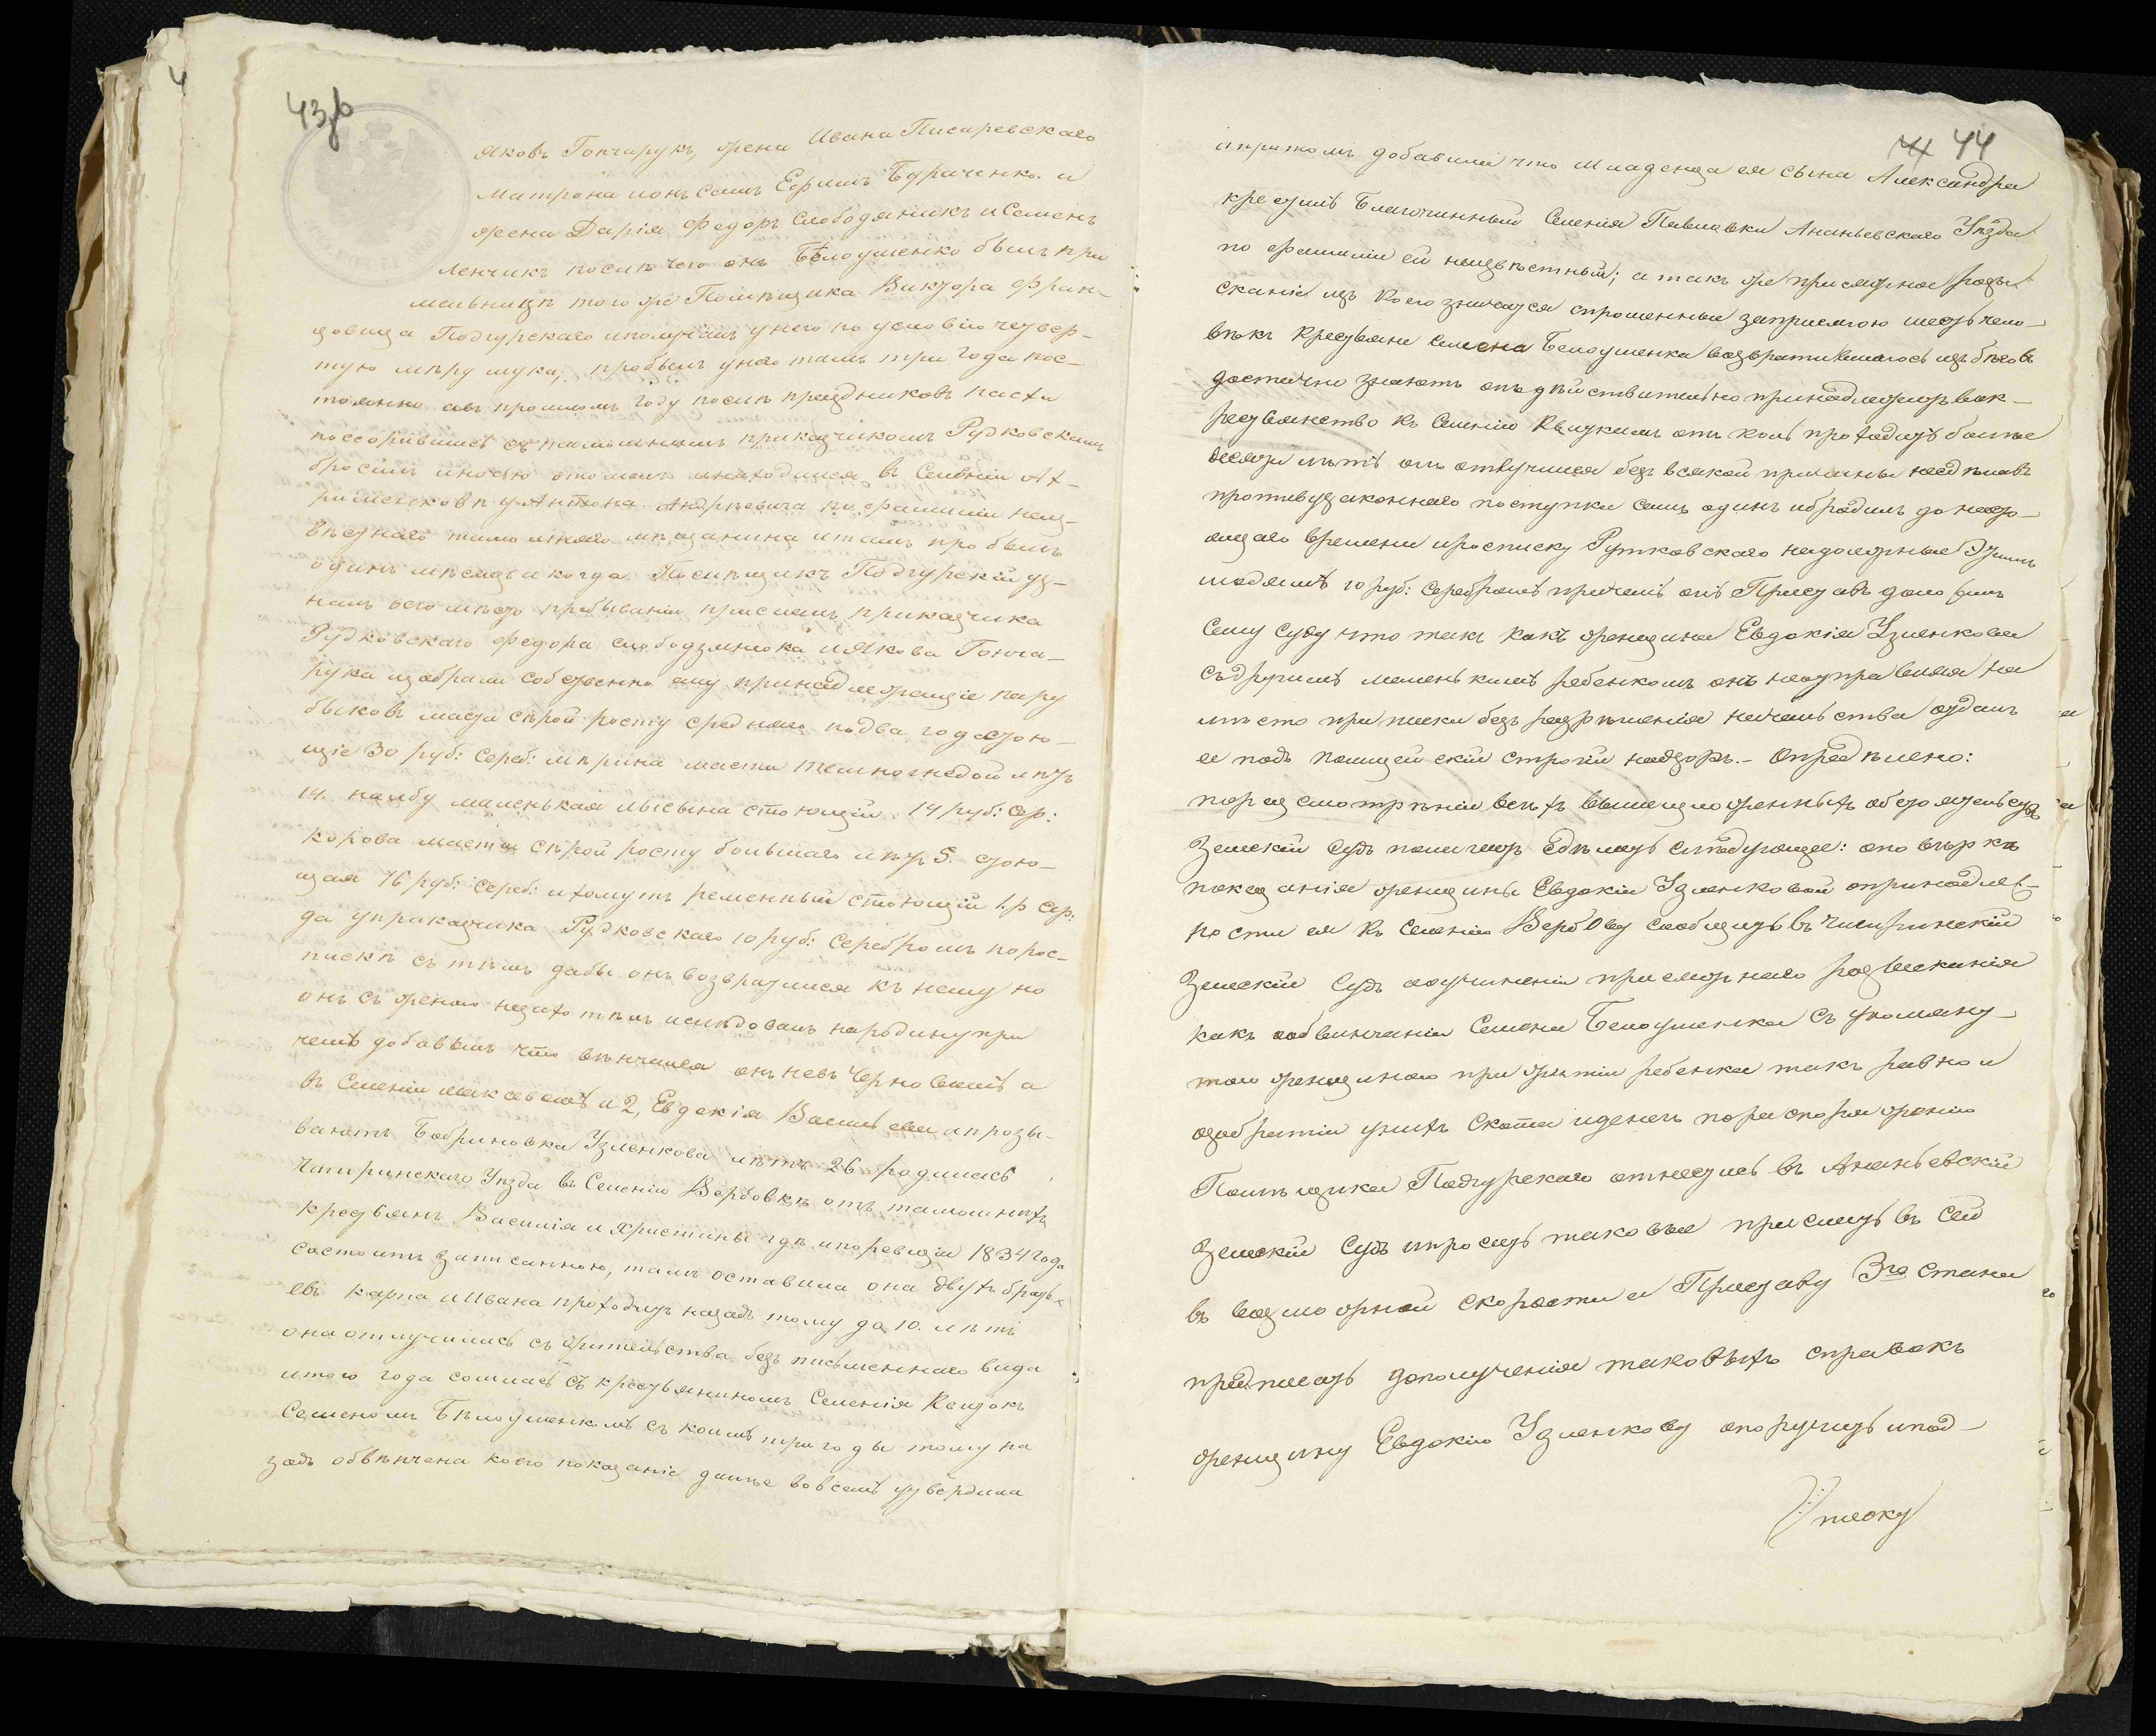 43об
Яковъ Гончарукъ, жена Ивана Писаревскаго
Матрона ионъ самъ Ефимъ Бураченко. и
жена Дарія Федоръ Слободяникъ и Семенъ
Ленчикъ послѣ чего онъ Бѣлоушенко былъ при
мельницѣ того же Помѣщика Виктора Фран-
цовича Подгурскаго иполучалъ унего по условію четвер-
тую мѣру муки; пробылъ унего тамъ три года пос-
тоянно авъ прошломъ году послѣ праздниковъ пасхи
поссорившись съ тамошнимъ прикащикомъ Рудковскимъ
бросилъ иностью отошелъ инаходился въ Селеніи
у Антона Андрѣевича по фамиліи неиз-
вѣстнаго тамошнаго мѣщанина итамъ пробылъ
одинъ мѣсяцъ и когда Помѣщикъ Подгурскій уз-
налъ оего мѣсто пребываніи прислалъ прикащика
Рудковскаго Федора Слободзянюка и Якова Гонча-
рука изабрали собственно ему принадлежащіе пару
быковъ масти сѣрой росту средняго подва года стою-
щіе 30 руб: сереб: мѣрина масти темногнедой лѣтъ
14. налбу маленькая лысына стоющій 14 руб: сер:
корова масти сѣрой росту большаго лѣтъ 5. стою-
щая 16 руб: сереб: ихомутъ ременный стоющій 1.р сер:
да уприкащика Рудковскаго 10 руб: серебромъ порос-
пискѣ съ тѣмъ дабы онъ возвратился къ нему но
онъ съ женою незахотѣлъ ислѣдовалъ народину при
чемъ добавилъ что вѣнчался онъ невъ Черно а
въ Селеніи и 2, Евдокія Василь ева апрозы-
ваютъ Бобриновка Узленкова лѣтъ 26 родилась
Чигиринскаго Уѣзда въ Селеніи Вербовкѣ отъ тамошнихъ
крестьянъ Василія и Христины гдѣ иноревизіи 1834 года
состоитъ записанною, тамъ оставила она двухъ брать-
евъ Карпа и Ивана проходитъ назадъ тому до 10. лѣтъ
она отлучилась съ жительства безъ письменнаго вида
итого года сошлась съ крестьяниномъ Селенія
Семеномъ Бѣлоушенкомъ съ коимъ три годы тому на
задъ обвѣнчена коего показаніе далѣе вовсемъ утвердила
44
ипритомъ добавила что младенца ея сына Александра
крестилъ Благочинный Селенія Павловки Ананьевскаго Уѣзда
по фамиліи ей неизвѣстный; а такъ же присяжное разы-
сканіе изъ коего значится спрошенные заприсягою шесть чело-
вѣкъ крестьяне Семена Белоушенка возвратившагось изъ бѣговъ
достачно знаютъ онъ дѣйствительно принадлежитъ вък-
рестьянство къ Селенію отъ коль проходитъ болѣе
десяти лѣтъ онъ отлучился безъ всякой причины несдѣлавъ
противузаконнаго поступка самъ одинъ ибродилъ до насто-
ящаго времени иросписку Рутковскаго надолжные Этимъ
людямъ 10 руб: серебромъ причемъ онъ Приставъ доносилъ
сему суду что такъ какъ женщина Евдокія Узленкова
съдругимъ маленькимъ ребенкомъ онъ неотправляя на
мѣсто приписки безъ разрѣшенія начальства отдалъ
ее подъ полицей скій строгій надзоръ.- Опредѣлено:
поразсмотрѣніи всѣхъ вышеизложенныхъ обстоятельствъ
Земскій Судъ полагаетъ сдѣлать слѣдующее: оповѣркѣ
показанія женщины Евдокіи Узленковой опринадлеж-
ности ея къ Селенію Вербову сообщить въ Чигиринскій
Земскій Судъ поучиненіи присяжнаго розысканія
какъ ообвѣнчаніи Семена Белоушенка съ упомяну-
тою женщиною прижитіи ребенка такъ равно и
озабратіи унихъ скота иденегъ пораспоряженію
Помѣщика Подгурскаго отнестись въ Ананьевскій
Земскій Судъ ипросить таковые прислать въ сей
въ возможной скорости а Приставу 3го Стана
предписать дополученія таковыхъ справокъ
женщину Евдокію Узленкову опоручить иод-
писку